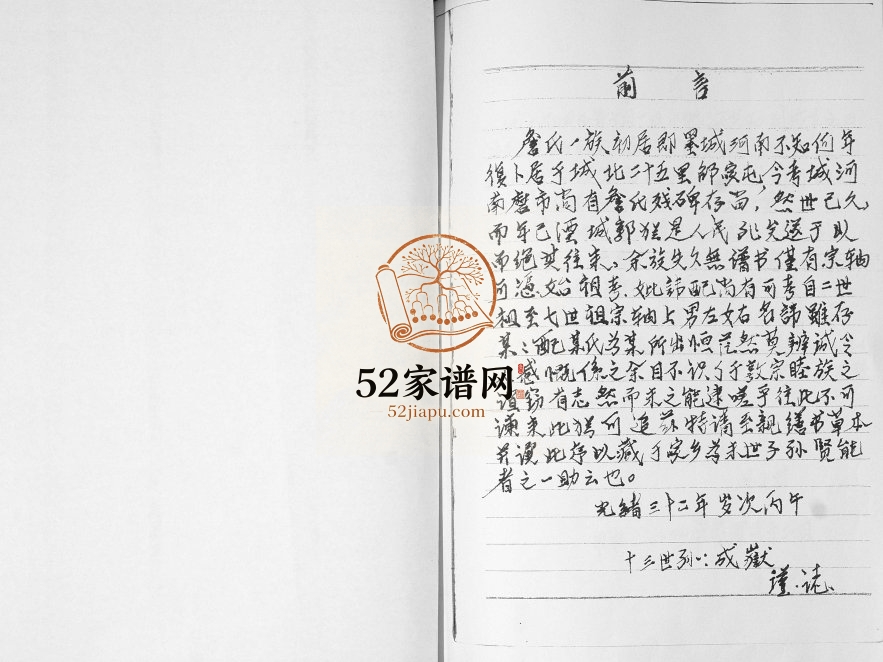 前言
詹氏一族初居即墨城河南不知何年
復卜居于城北二十五里部家屯今考城河
南舊市尚有詹氏残碑存苗，然世已久
而年已湮城郭犹是人民
而绝其往来、余族失久無谱书僅有宗轴
可憑始祖考、妣諱配尚有可考自二世
祖至七世祖宗轴上男左女右名諱雖存
某：配某氏为某所出恒茫然莫辨诚令
感慨係之余目不识丁于敦宗睦族之
谊窃有志然而未之能逮嗟乎往此不可
谏来此犹可追兹特请至親缮书草本
并譔此序以藏于家乡为来世子孙贤能
者之一助云也。
光緒三十二年岁次丙午
十三世孙：成嶽
谨·誌、
52家谱网
52jiapu.com